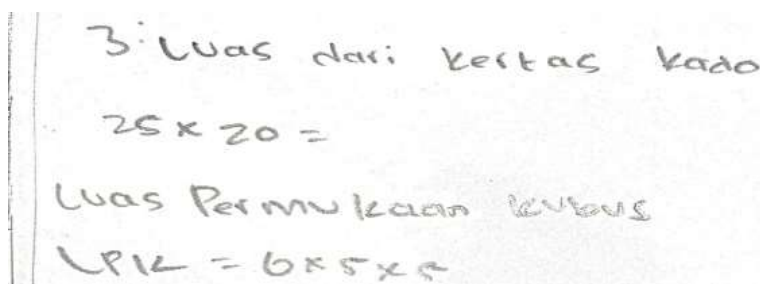 3. Luas dari kertas kado
25 x 20 =
Luas Permukaan kubus
LPK = 6 x 5 x 5